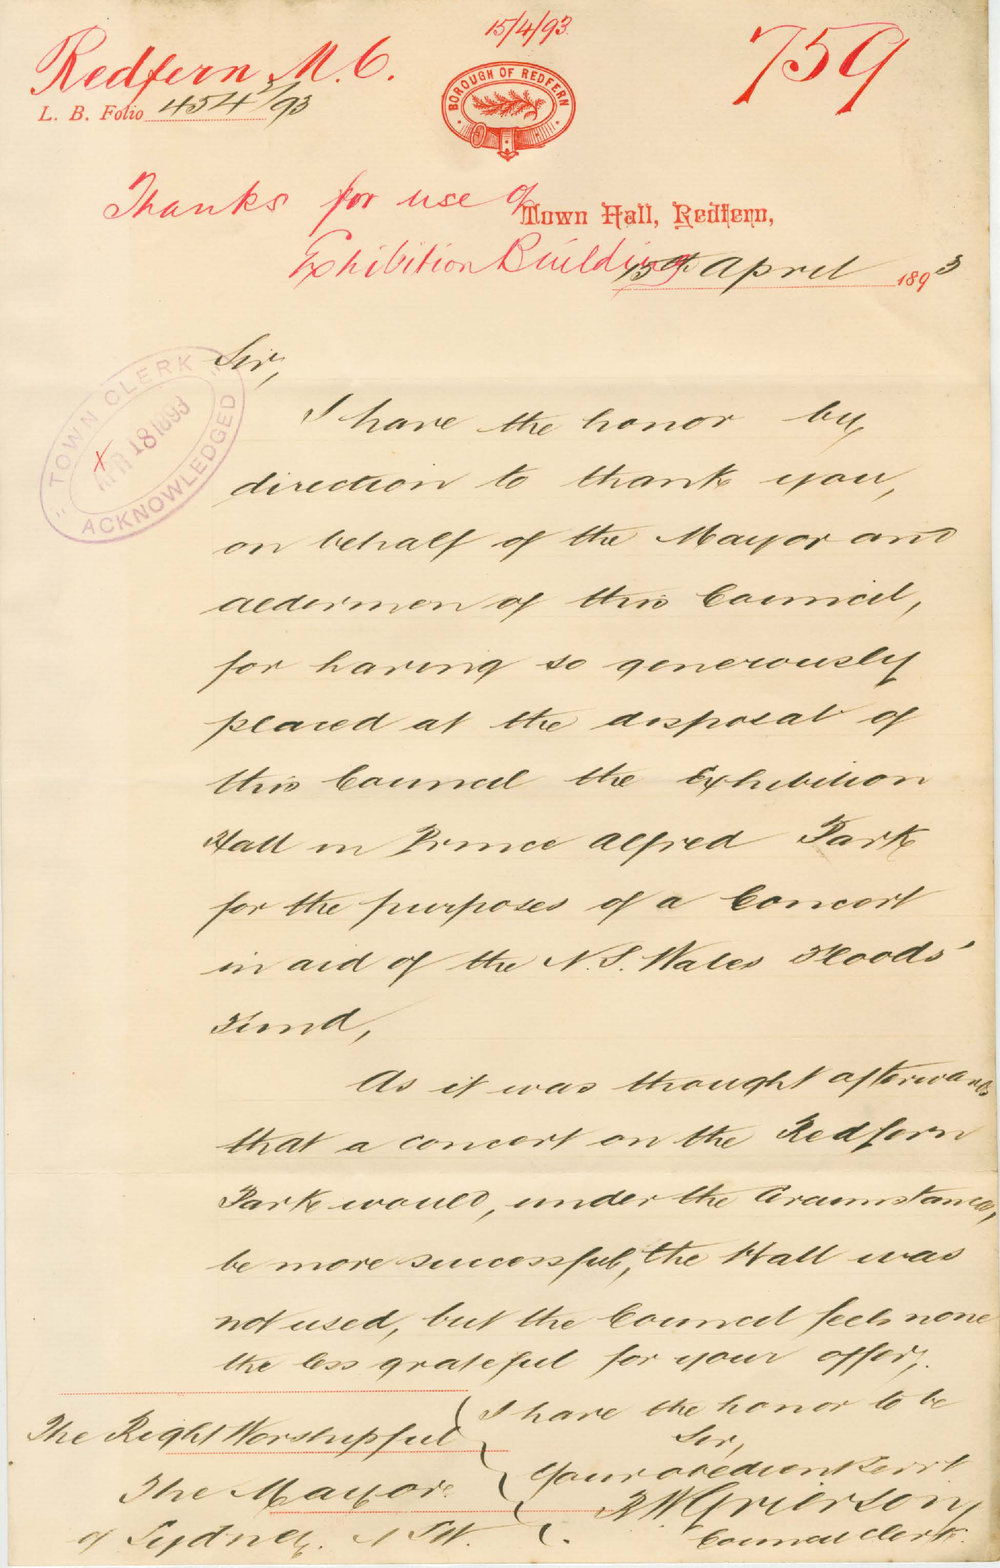 15/4/93
Redfern M.C.
759
L. B. Folio 454/93
BOROUGH OF REDFERN
Thanks for use of
Exhibition Building
Town Hall, Redfern,
15th April 1893
"TOWN CLERK"
APR 18 1893
ACKNOWLEDGED
Sir,
I have the honor by
direction to thank you,
on behalf of the Mayor and
aldermen of this Council,
for having so generously
placed at the disposal of
this Council the Exhibition
Hall in Prince Alfred Park
for the purposes of a Concert
in aid of the N.S. Wales Floods'
Fund,
As it was thought afterwards
that a concert on the Redfern
Park would, under the Circumstances,
be more successful, the Hall was
not used, but the Council feels none
the less grateful for your offer,.
I have the honor to be
Sir,
Your obedient Servt
Council Clerk.
The Right Worshipful
The Mayor
of Sydney. NSW.